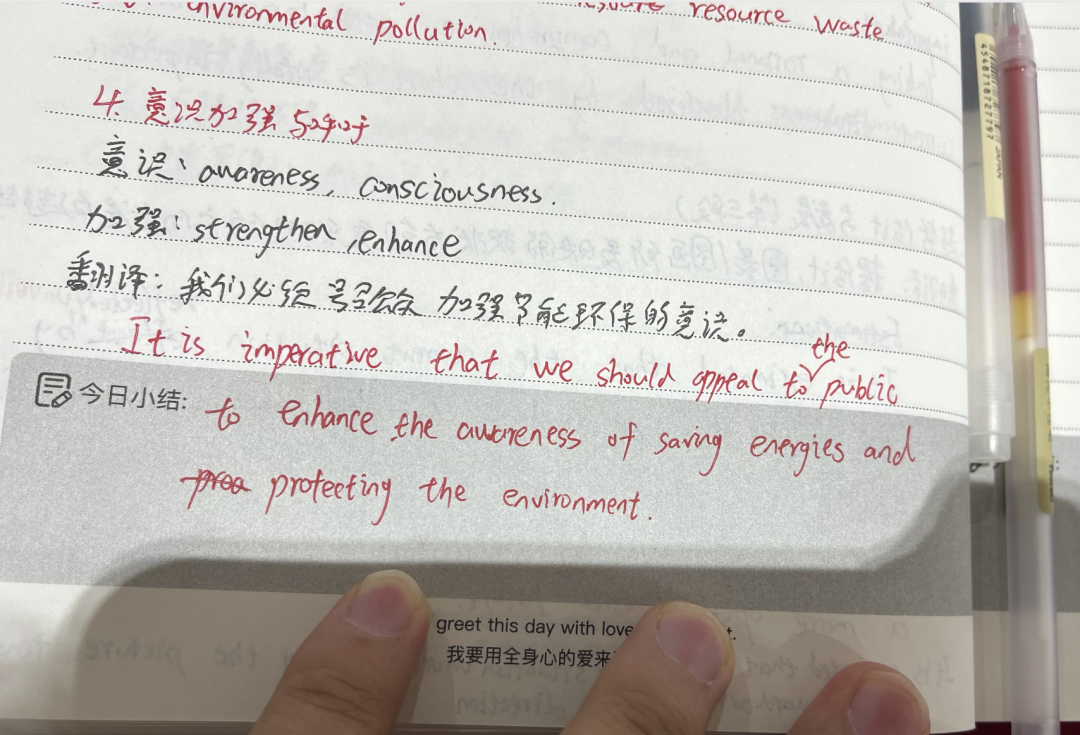 environmental pollution.
resource waste
4. 意识加强
意识: awareness, consciousness.
加强: strengthen, enhance
翻译: 我们必须号召公众加强节能环保的意识。
the
It is imperative that we should appeal to public
今日小结:
to enhance the awareness of saving energies and
protecting the environment.
greet this day with love
我要用全身心的爱来
4587187727797